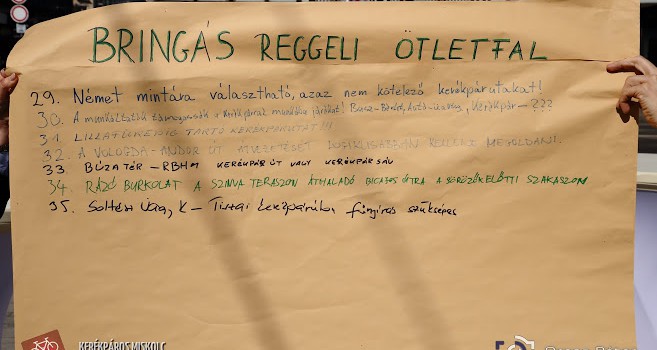 BRINGÁS REGGELI ÖTLETFAL
29. Német mintára választható, azaz nem kötelező kerékpárutakat!
30. A munkáltatók támogassák a kerékpárral munkába járókat! Kerékpár - ???
31. LILLAFÜREDIG TARTÓ KERÉKPÁRUTAT!!!
32. A VOLOGDA-ANDOR ÚT ÁTVEZETÉSÉT LOGIKUSABBAN KELLENE MEGOLDANI.
33. BÚZA TÉR - KERÉKPÁRÚT VAGY KERÉKPÁRSÁV
34. RÁZÓ BURKOLAT A SZINVA TERASZON ÁTHALADÓ BICAJOS ÚTRA A SÖRÖZŐK ELŐTTI SZAKASZON
35. Tiszai szükséges
KERÉKPÁROS MISKOLC